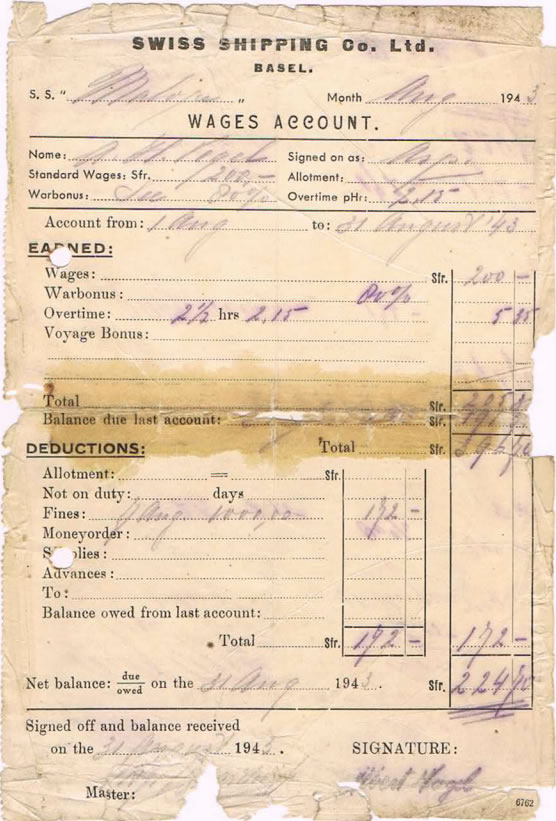 SWISS SHIPPING Co. Ltd.
BASEL.
S. S. " Maloja " Month Aug 1943
WAGES ACCOUNT.
Name: Signed on as:
Standard Wages: Sfr. 200,— Allotment:
Warbonus: 80% Overtime pHr: 2.15
Account from: 1 Aug to: 31 August 43
EARNED:
Wages: Sfr. 200 —
Warbonus: 80%
Overtime: 2½ hrs 2.15 5 35
Voyage Bonus:
Total Sfr. 205
Balance due last account: Sfr.
DEDUCTIONS: Total Sfr. 396
Allotment: = Sfr.
Not on duty: days
Fines: Aug. 1000,00 172 —
Moneyorder:
Supplies:
Advances:
To:
Balance owed from last account:
Total Sfr. 172 — 172 —
Net balance: due/owed on the 31 Aug 1943. Sfr. 224
Signed off and balance received
on the 31 August 1943. SIGNATURE:
Master:
6762